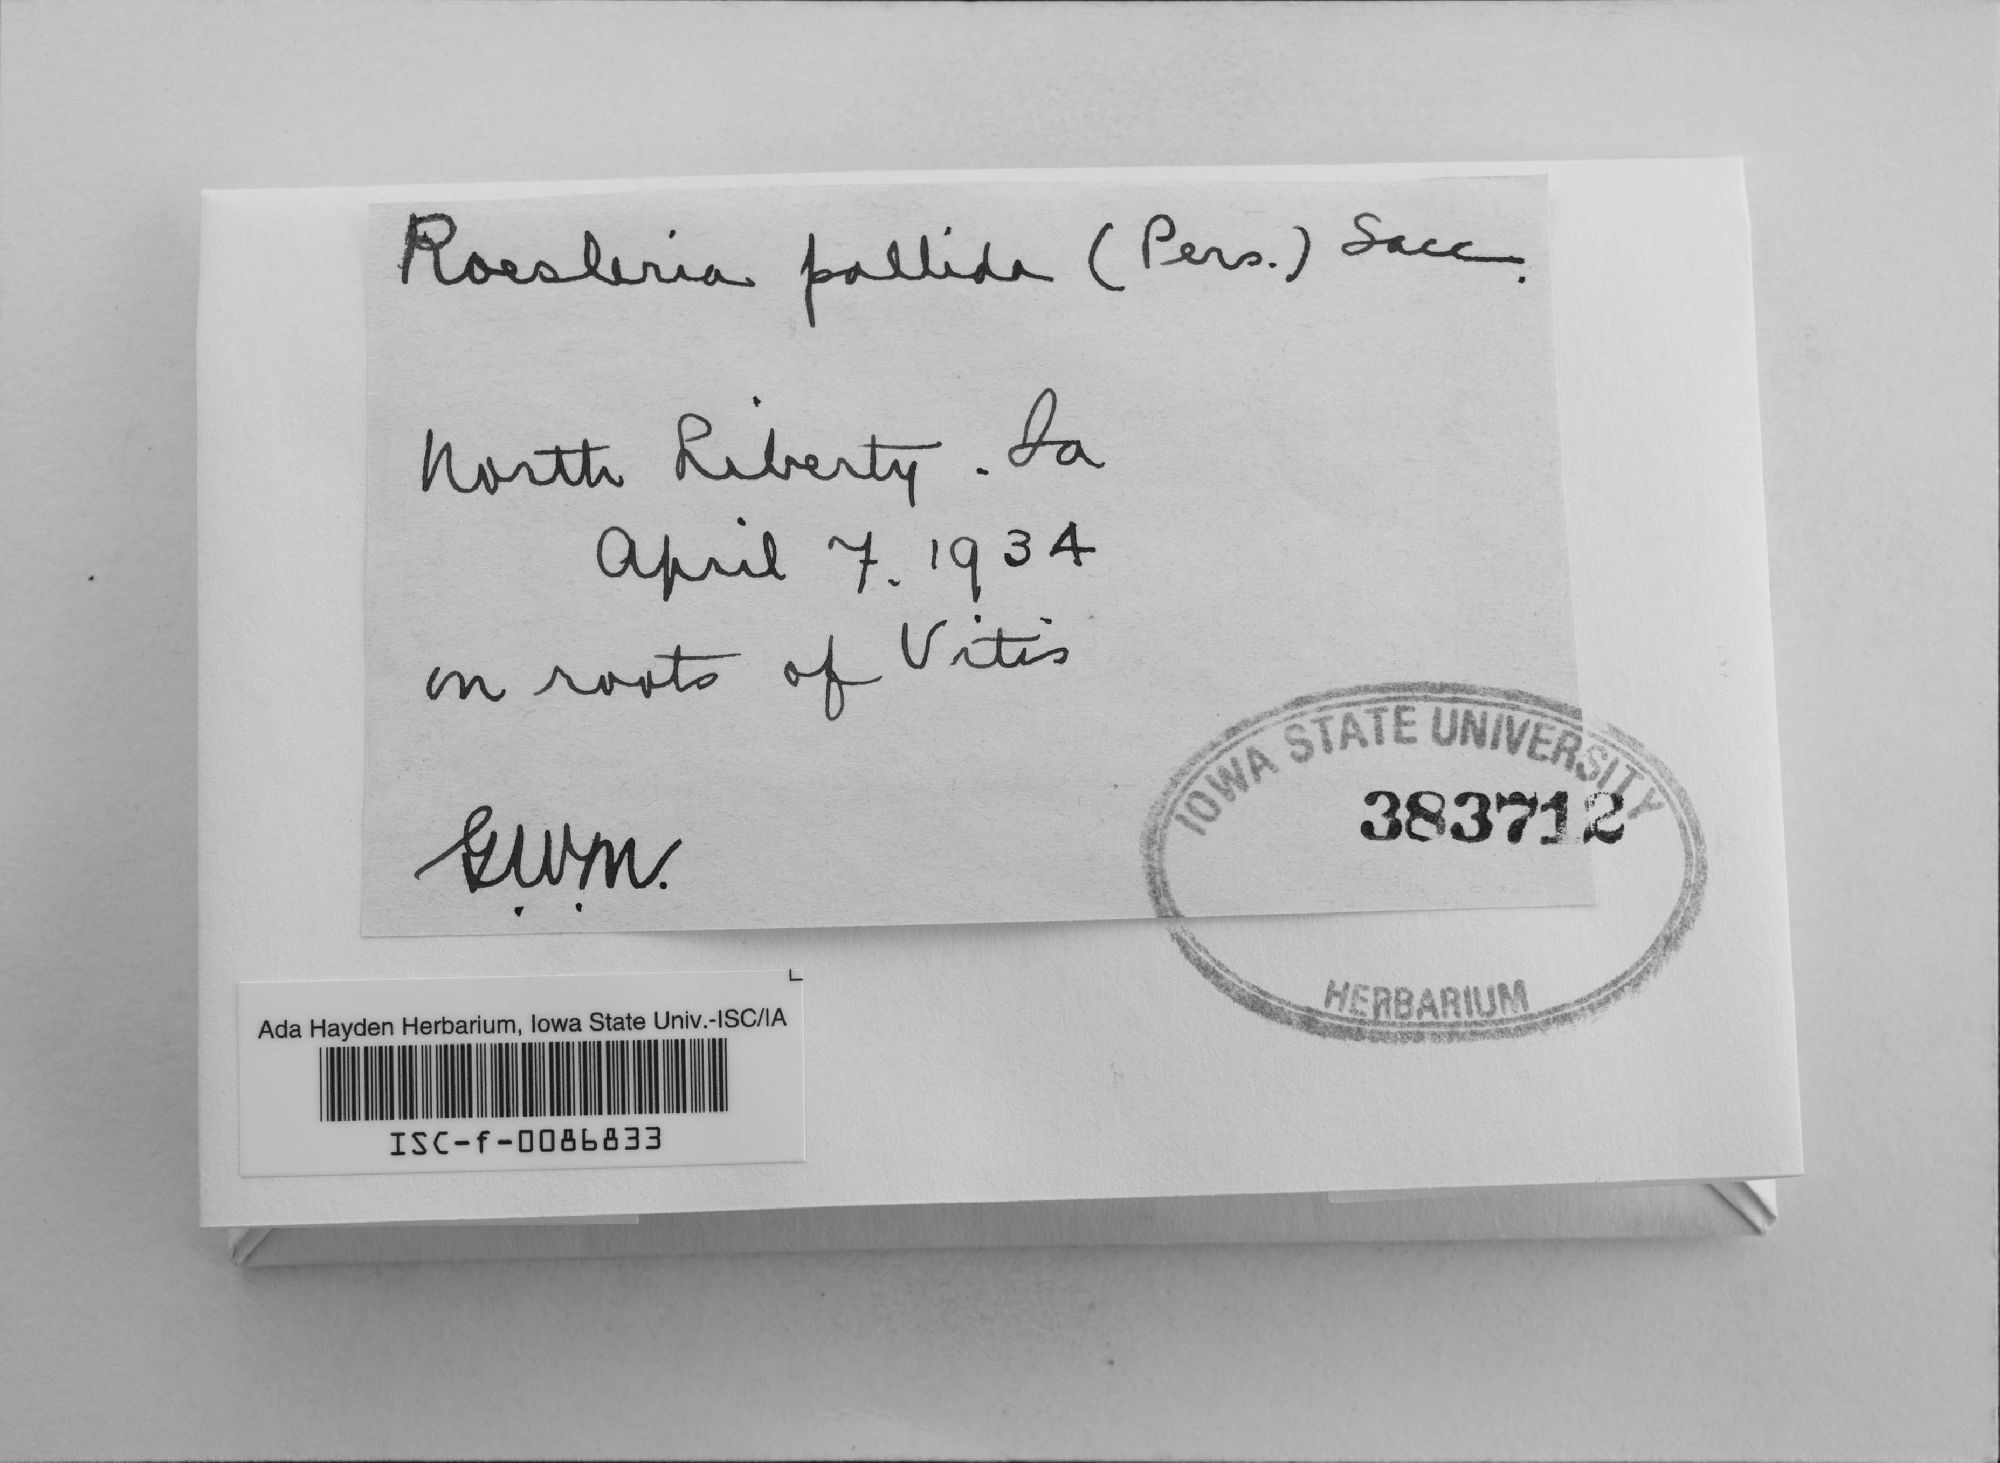 Roesleria pallida (Pers.) Sacc.
North Liberty. Ia
April 7. 1934
on roots of Vitis
G.W.M.
IOWA STATE UNIVERSITY
383712
HERBARIUM
Ada Hayden Herbarium, Iowa State Univ.-ISC/IA
ISC-f-0086833